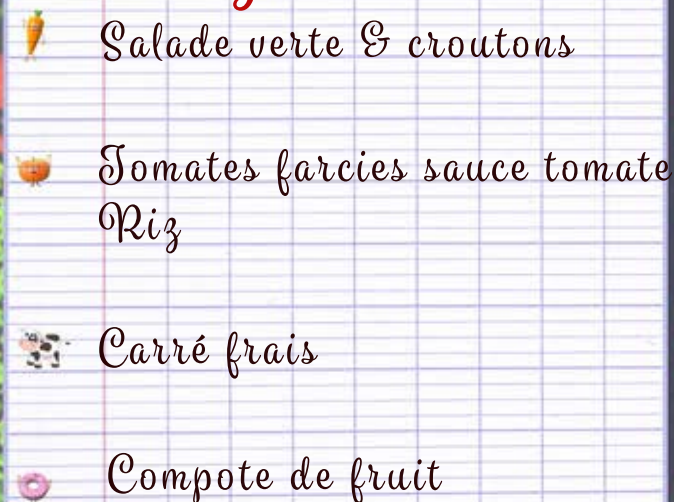 Salade verte & croutons
Tomates farcies sauce tomate
Riz
Carré frais
Compote de fruit